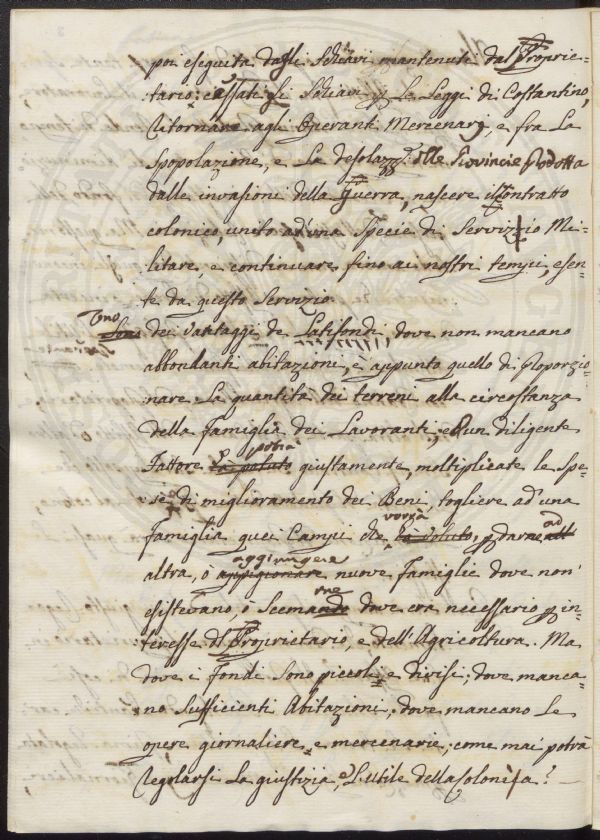 poi eseguita dagli Schiavi mantenuti dal Proprie-
tario; cessati gli Schiavi p le Leggi di Costantino,
ritornare agli Operanti Mercenarj, e fra La
Spopolazione, e La desolazze. delle Provincie Prodotta
dalle invasioni della Guerra, nascere il Contratto
colonico, unito ad una Specie di Servizio Mi-
litare, e continuare fino ai nostri tempi esen-
te da questo Servizio.
Uno
dei vantaggi de Latifondi dove non mancano
abbondanti abitazioni, è appunto quello di Proporzio-
nare La quantità dei terreni alla circostanza
della famiglia dei Lavoranti, e un diligente
potrà
Fattore ha potuto giustamente, moltiplicate le Spe-
se di miglioramento dei Beni, togliere ad una
vorrà
famiglia quei Campi che ha voluto, p darne all' ad
aggiungere
altra, o appigionare nuove famiglie dove non
re
esistevano, o Scemando dove era necessario p in-
teresse del Proprietario, e dell'Agricoltura. Ma
dove i fondi Sono piccoli, e divisi; dove manca-
no Sufficienti Abitazioni, dove mancano Le
opere giornaliere, e mercenarie, come mai potrà
regolarsi La giustizia, e L'utile della Colonìa?